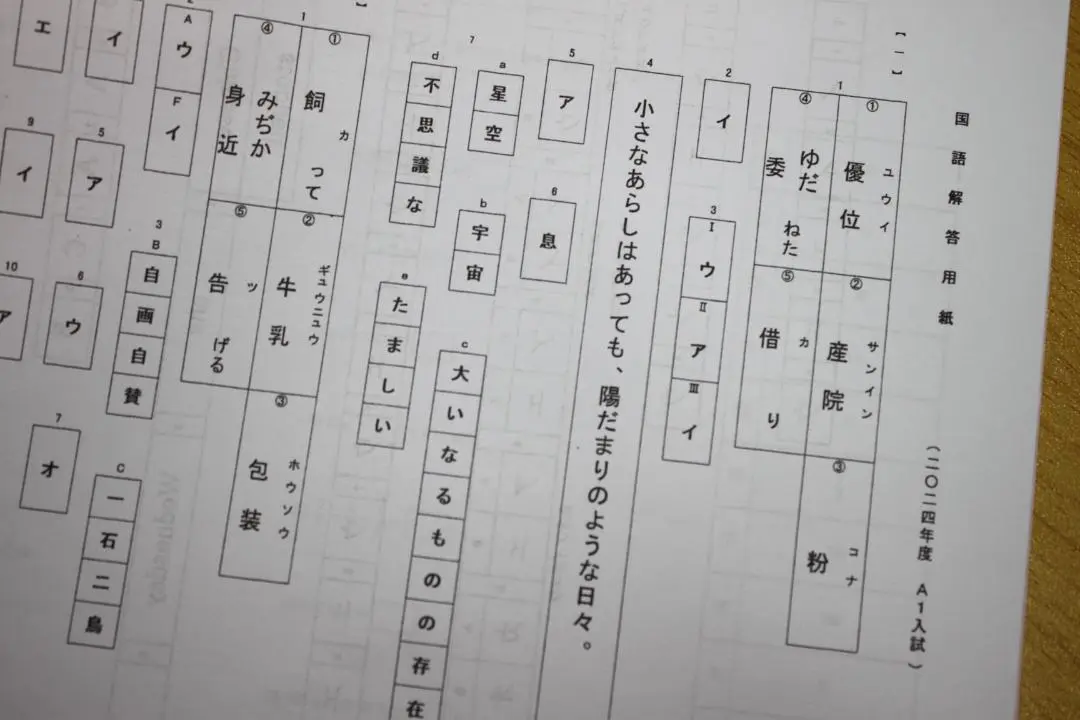 国語解答用紙
（二〇二四年度 A1入試）
【一】
1
① 優位 ユウイ
② 産院 サンイン
③ 粉 コナ
④ 委ねた ゆだ
⑤ 借り カ
2
イ
3
Ⅰ ウ
Ⅱ ア
Ⅲ イ
4
小さなあらしはあっても、陽だまりのような日々。
5
ア
6
息
7
a 星空
b 宇宙
c 大いなるものの存在
d 不思議な
e たましい
】
1
① 飼って カ
② 牛乳 ギュウニュウ
③ 包装 ホウソウ
④ 身近 みぢか
⑤ 告げる ツ
2
A ウ
F イ
3
B 自画自賛
C 一石二鳥
イ
5
ア
6
ウ
7
オ
エ
9
イ
10
ア
Wednesday